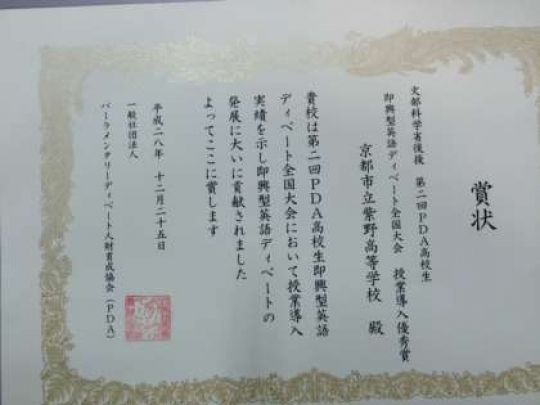 賞状
文部科学省後援 第二回PDA高校生
即興型英語ディベート全国大会 授業導入優秀賞
京都市立紫野高等学校 殿
貴校は第二回PDA高校生即興型英語
ディベート全国大会において授業導入
実績を示し即興型英語ディベートの
発展に大いに貢献されました
よってここに賞します
平成二八年 十二月二十五日
一般社団法人
パーラメンタリーディベート人財育成協会(PDA)